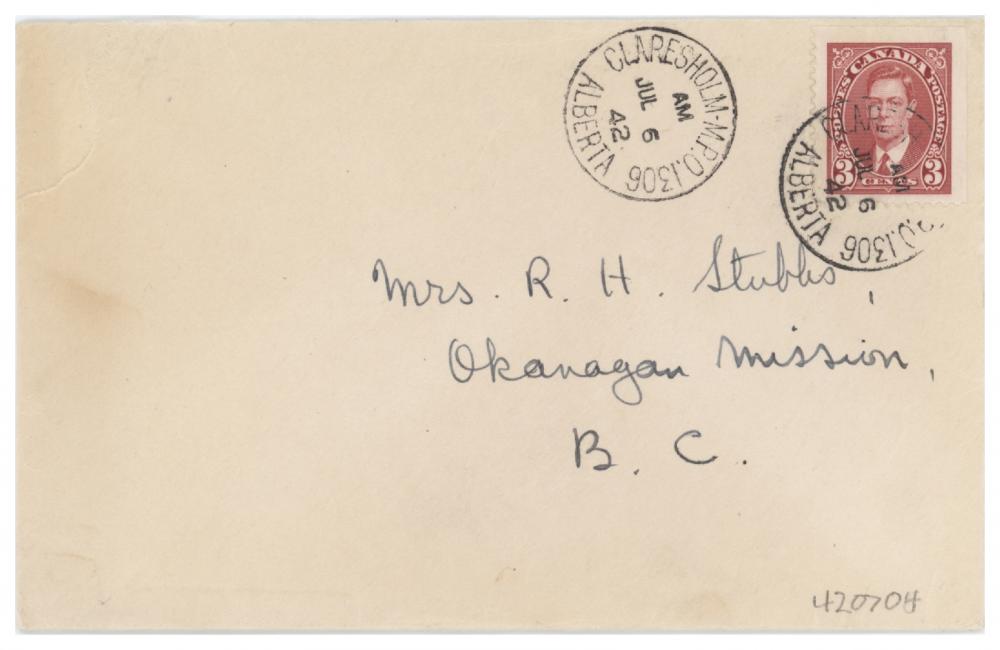 CLARESHOLM-M.P.O.1306
AM
JUL 6
42
ALBERTA
POSTES CANADA POSTAGE
3 CENTS 3
CLARE P.O.1306
AM
JUL 6
42
ALBERTA
Mrs. R. H. Stubbs,
Okanagan Mission,
B. C.
420704